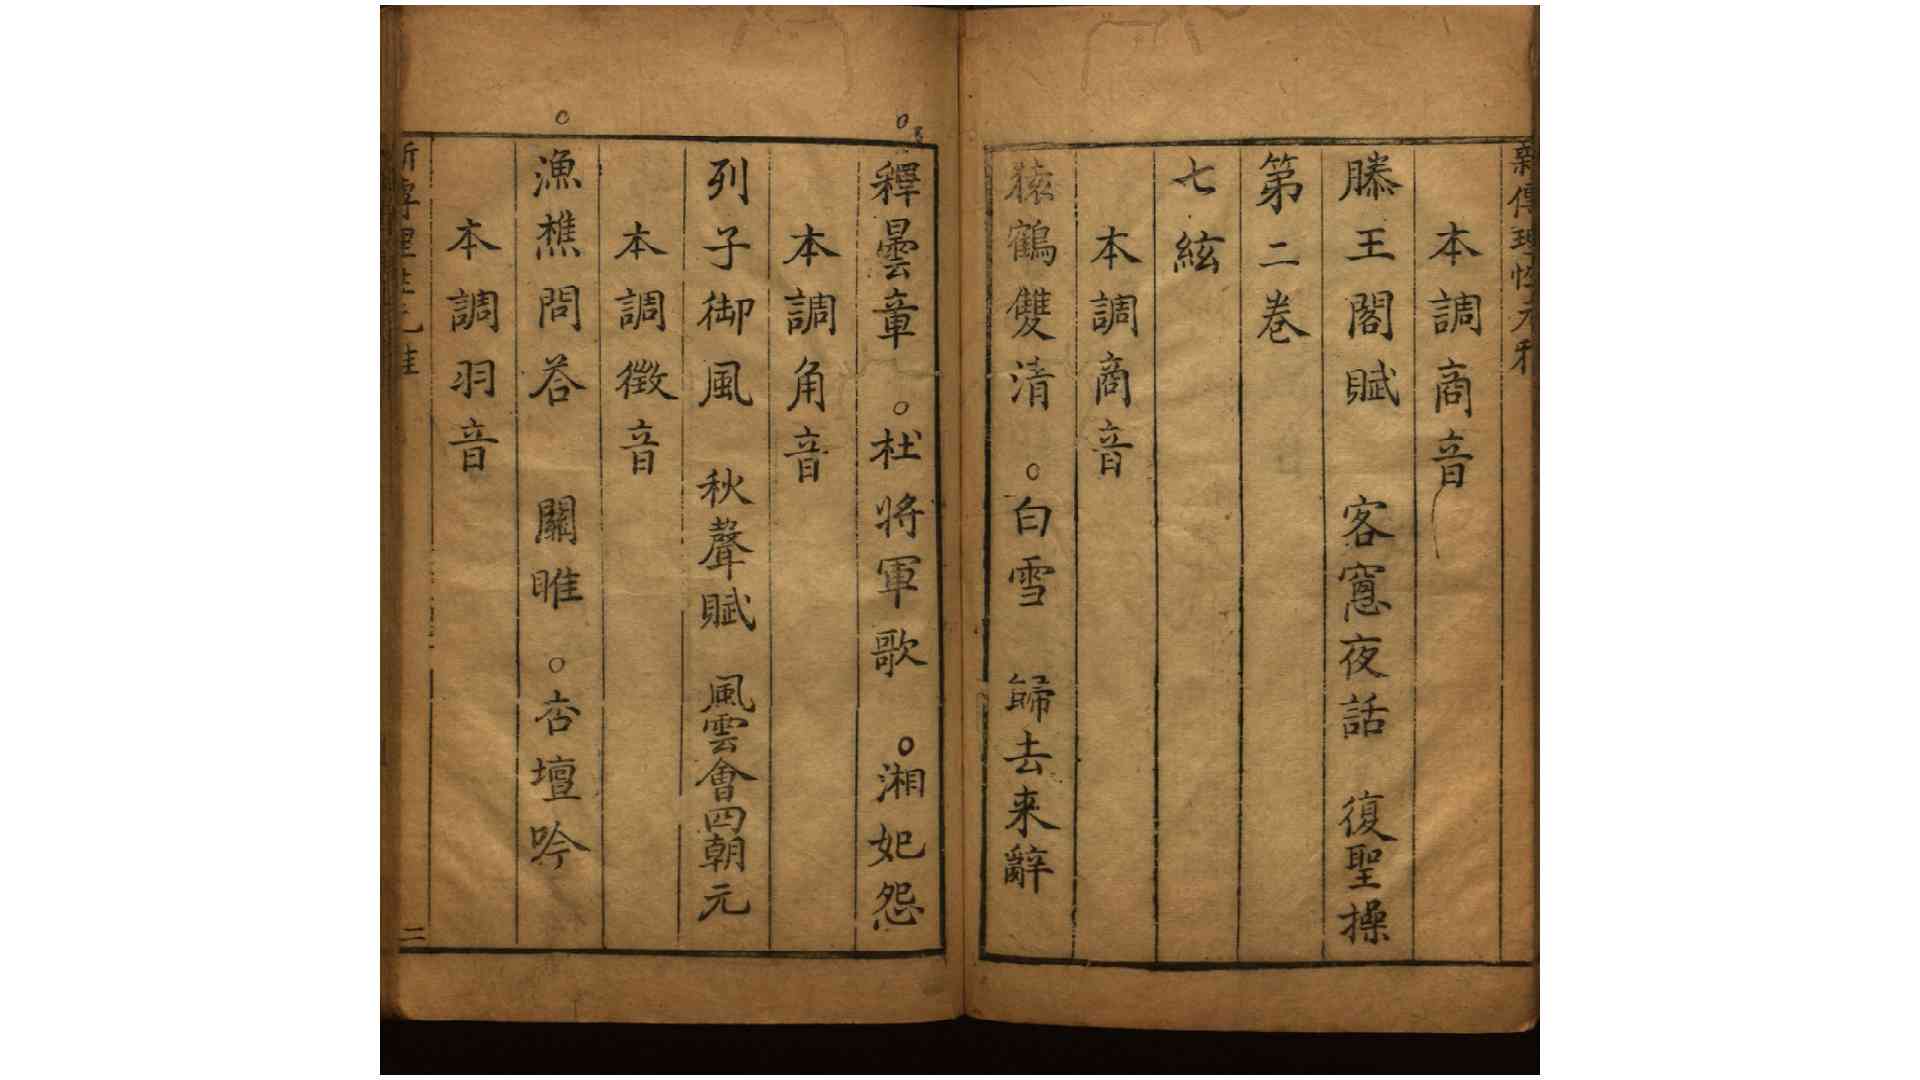 新傳理性元雅
本調商音
滕王閣賦　客窻夜話　復聖操
第二卷
七絃
本調商音
猿鶴雙清　○白雪　歸去来辭
釋曇章　○杜將軍歌　○湘妃怨
本調角音
列子御風　秋聲賦　風雲會四朝元
本調徵音
漁樵問答　關雎　○杏壇吟
本調羽音
新傳理性元雅
二